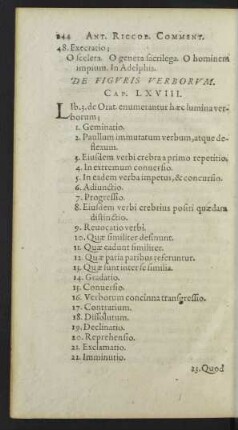 244 ANT. RICCOB. COMMENT.
48. Execratio;
O scelera. O genera sacrilega. O hominem
impium. In Adelphis.
DE FIGVRIS VERBORVM.
CAP. LXVIII.
LIb. 3. de Orat. enumerantur hæc lumina ver-
borum;
1. Geminatio.
2. Paullum immutatum verbum, atque de-
flexum.
3. Eiusdem verbi crebra a primo repetitio.
4. In extremum conuersio.
5. In eadem verba impetus, & concursio.
6. Adiunctio.
7. Progressio.
8. Eiusdem verbi crebrius positi quædam
distinctio.
9. Reuocatio verbi.
10. Quæ similiter desinunt.
11. Quæ cadunt similiter.
12. Quæ paria paribus referuntur.
13. Quæ sunt inter se similia.
14. Gradatio.
15. Conuersio.
16. Verborum concinna transgressio.
17. Contrarium.
18. Dissolutum.
19. Declinatio.
20. Reprehensio.
21. Exclamatio.
22. Imminutio.
23. Quod